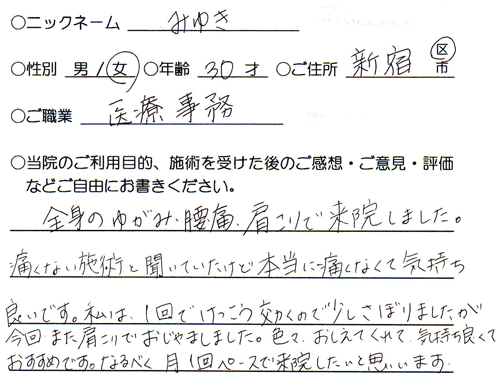 ○ニックネーム みゆき
○性別 男/女 ○年齢 30才 ○ご住所 新宿 区 市
○ご職業 医療事務
○当院のご利用目的、施術を受けた後のご感想・ご意見・評価
などご自由にお書きください。
全身のゆがみ、腰痛、肩こりで来院しました。
痛くない施術と聞いていたけど本当に痛くなくて気持ち
良いです。私は、1回でけっこう効くので少しさぼりましたが
今回また肩こりでおじゃましました。色々、おしえてくれて、気持ち良くて
おすすめです。なるべく月1回ペースで来院したいと思います。